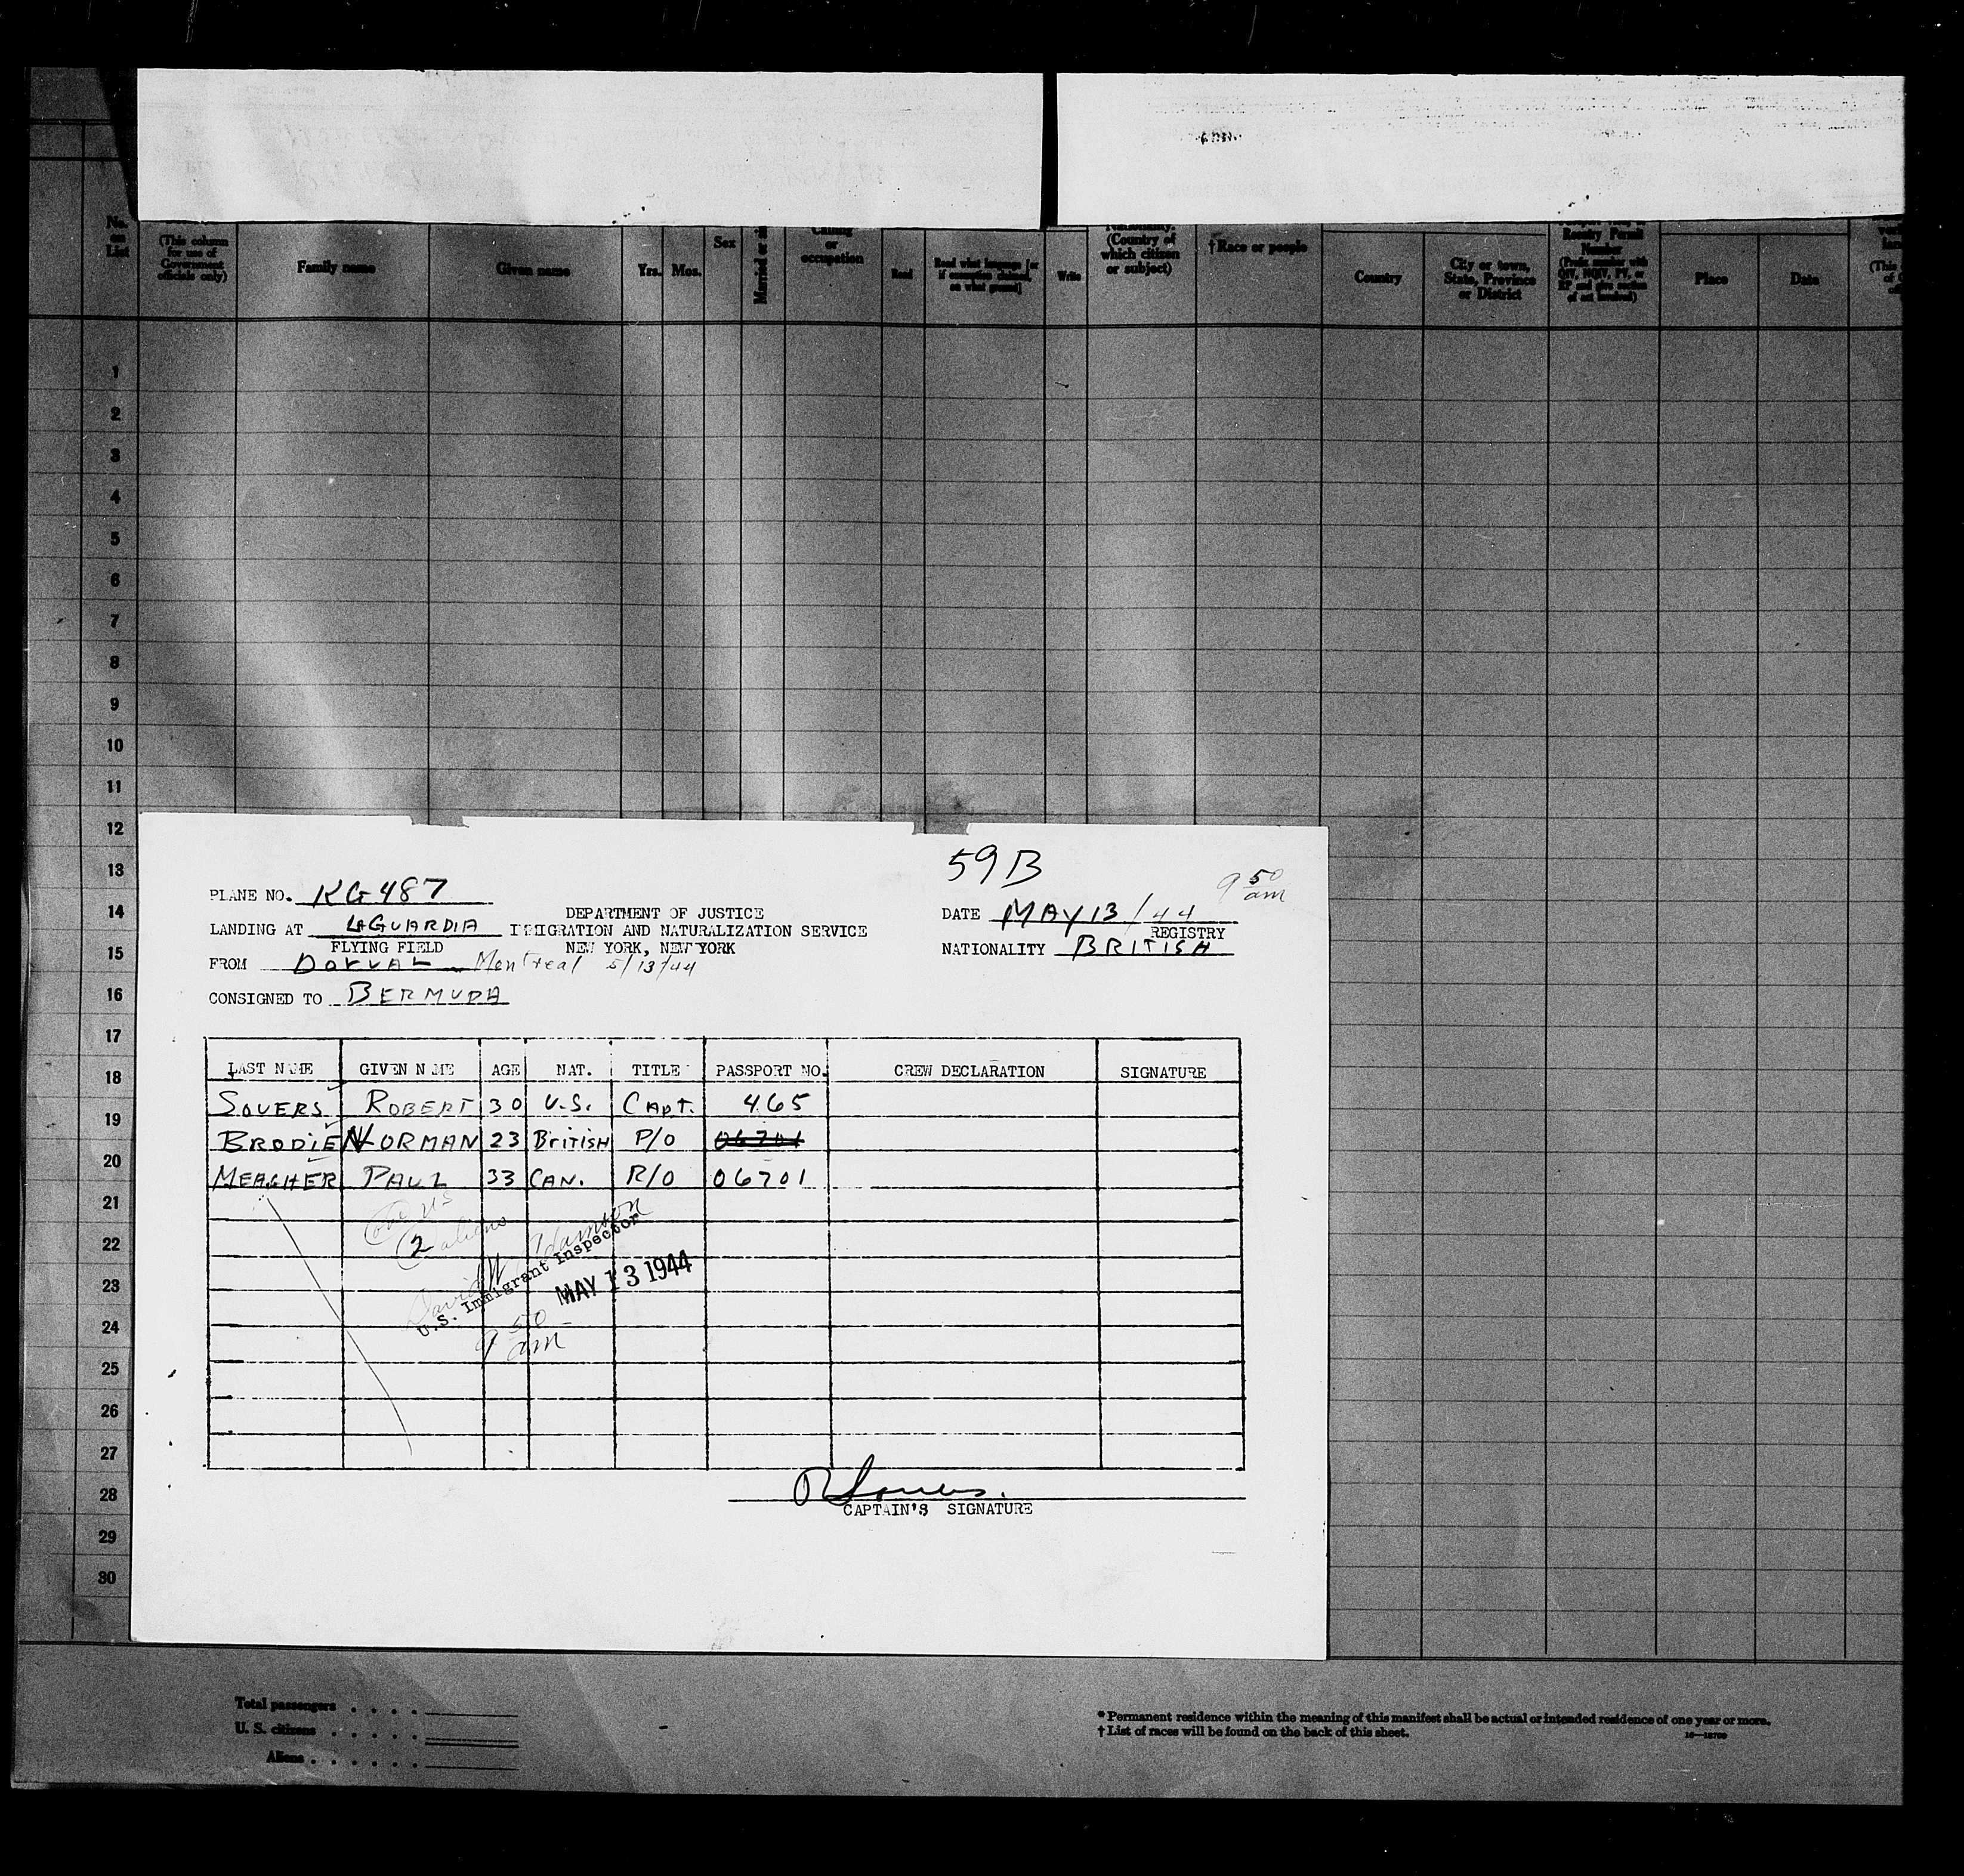 No. on List
(This column for use of Government officials only)
Family name
Given name
Yrs.
Mos.
Sex
Married or si
Calling or occupation
Read
Read what language [or if exemption claimed, on what ground]
Write
Nationality. (Country of which citizen or subject)
†Race or people
Country
City or town, State, Province or District
Place
Date
1
2
3
4
5
6
7
8
9
10
11
12
13
14
15
16
17
18
19
20
21
22
23
24
25
26
27
28
29
30
59B
9 50 am
PLANE NO. KG487
DEPARTMENT OF JUSTICE
DATE MAY 13/44
LANDING AT LAGUARDIA
IMMIGRATION AND NATURALIZATION SERVICE
REGISTRY
FLYING FIELD
NEW YORK, NEW YORK
NATIONALITY BRITISH
FROM DORVAL Montreal 5/13/44
CONSIGNED TO BERMUDA
LAST NAME GIVEN NAME AGE NAT. TITLE PASSPORT NO. CREW DECLARATION SIGNATURE
SOUERS ROBERT 30 U.S. CAPT. 465
BRODIE NORMAN 23 BRITISH P/O 06701
MEAGHER PAUL 33 CAN. R/O 06701
one US
2 aliens
David W
U.S. Immigrant Inspector
MAY 13 1944
9 50 am
R Souers.
CAPTAIN'S SIGNATURE
Total passengers . . . .
U. S. citizens . . . . .
Aliens . . . . . .
* Permanent residence within the meaning of this manifest shall be actual or intended residence of one year or more.
† List of races will be found on the back of this sheet.